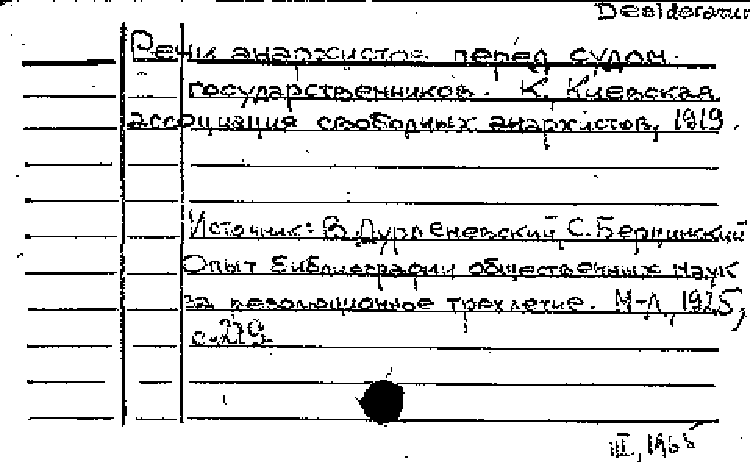 Desiderata
Речи анархистов перед судом
государственников. К. Киевская
ассоциация свободных анархистов, 1919.
Источник: В. Дурденевский, С. Берцинский
Опыт библиографии общественных наук
за революционное трехлетие. М-Л, 1925,
с. 219
III, 1965